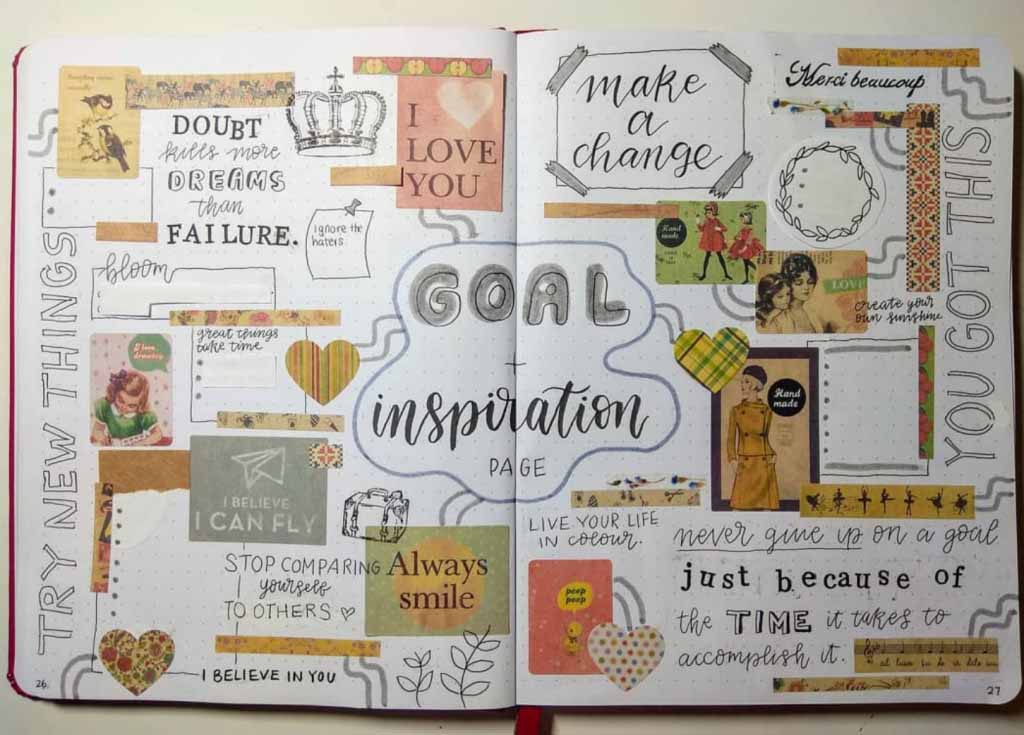 DOUBT
kills more
DREAMS
than
FAILURE.
I
LOVE
YOU
ignore the
haters
bloom
great things
take time
I love
drawing
TRY NEW THINGS
I BELIEVE
I CAN FLY
STOP COMPARING
yourself
TO OTHERS
Always
smile
I BELIEVE IN YOU
26
GOAL
+
inspiration
PAGE
make
a
change
Merci beaucoup
Hand
made
LOVE
create your
own sunshine
Hand
made
YOU GOT THIS
LIVE YOUR LIFE
IN COLOUR.
peep
peep
never give up on a goal
just because of
the TIME it takes to
accomplish it.
27